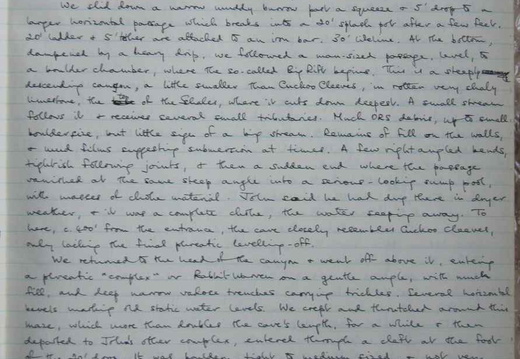 We slid down a narrow muddy burrow past a squeeze + 5' drop to a
larger horizontal passage which breaks into a 20' splash pot after a few feet.
20' ladder + 5' tether are attached to an iron bar. 30' lifeline. At the bottom,
dampened by a heavy drip, we followed a man-sized passage, level, to
a boulder chamber, where the so-called Big Rift begins. This is a steeply
descending canyon, a little smaller than Cuckoo Cleeves, in rotten very shaly
limestone, the of the Shales, where it cuts down deepest. A small stream
follows it + receives several small tributaries. Much ORS debris, up to small
boulder size, but little sign of a big stream. Remains of fill on the walls,
+ mud films suggesting submersion at times. A few right angled bends,
tightish following joints, + then a sudden end where the passage
vanished at the same steep angle into a serious-looking sump pool,
with masses of choke material. John said he had dug there in dryer
weather, + it was a complete choke, the water seeping away. To
here, c. 400' from the entrance, the cave closely resembles Cuckoo Cleeves,
only lacking the final phreatic levelling-off.
We returned to the head of the canyon + went off above it, entering
a phreatic "complex" or Rabbit Warren on a gentle angle, with much
fill, and deep narrow vadose trenches carrying trickles. Several horizontal
bevels marking old static water levels. We crept and thrutched around this
maze, which more than doubles the cave's length, for a while + then
departed to John's other complex, entered through a cleft at the foot
of the 20' drop. It was boulder, tight to medium sized, + not very